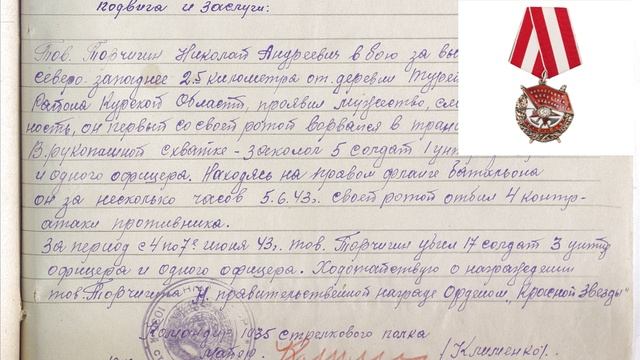 подвига и заслуги:
Тов. Торчигин Николай Андреевич в бою за
северо-западнее 2.5 километра от деревни
Района Курской Области, проявил мужество,
ность, он первый со своей ротой ворвался в
В рукопашной схватке - заколол 5 солдат 1
и одного офицера. Находясь на правом фланге батальона
он за несколько часов 5.6.43г. своей ротой отбил 4 контр-
атаки противника.
За период с 4 по 7е июня 43г. тов. Торчигин убил 17 солдат 3 унтер
офицера и одного офицера. Ходотайствую о награждении
тов. Торчигина Н. правительственной награде Орденом "Красной Звезды"
Командир 1035 стрелкового полка
майор
/Клименко/.